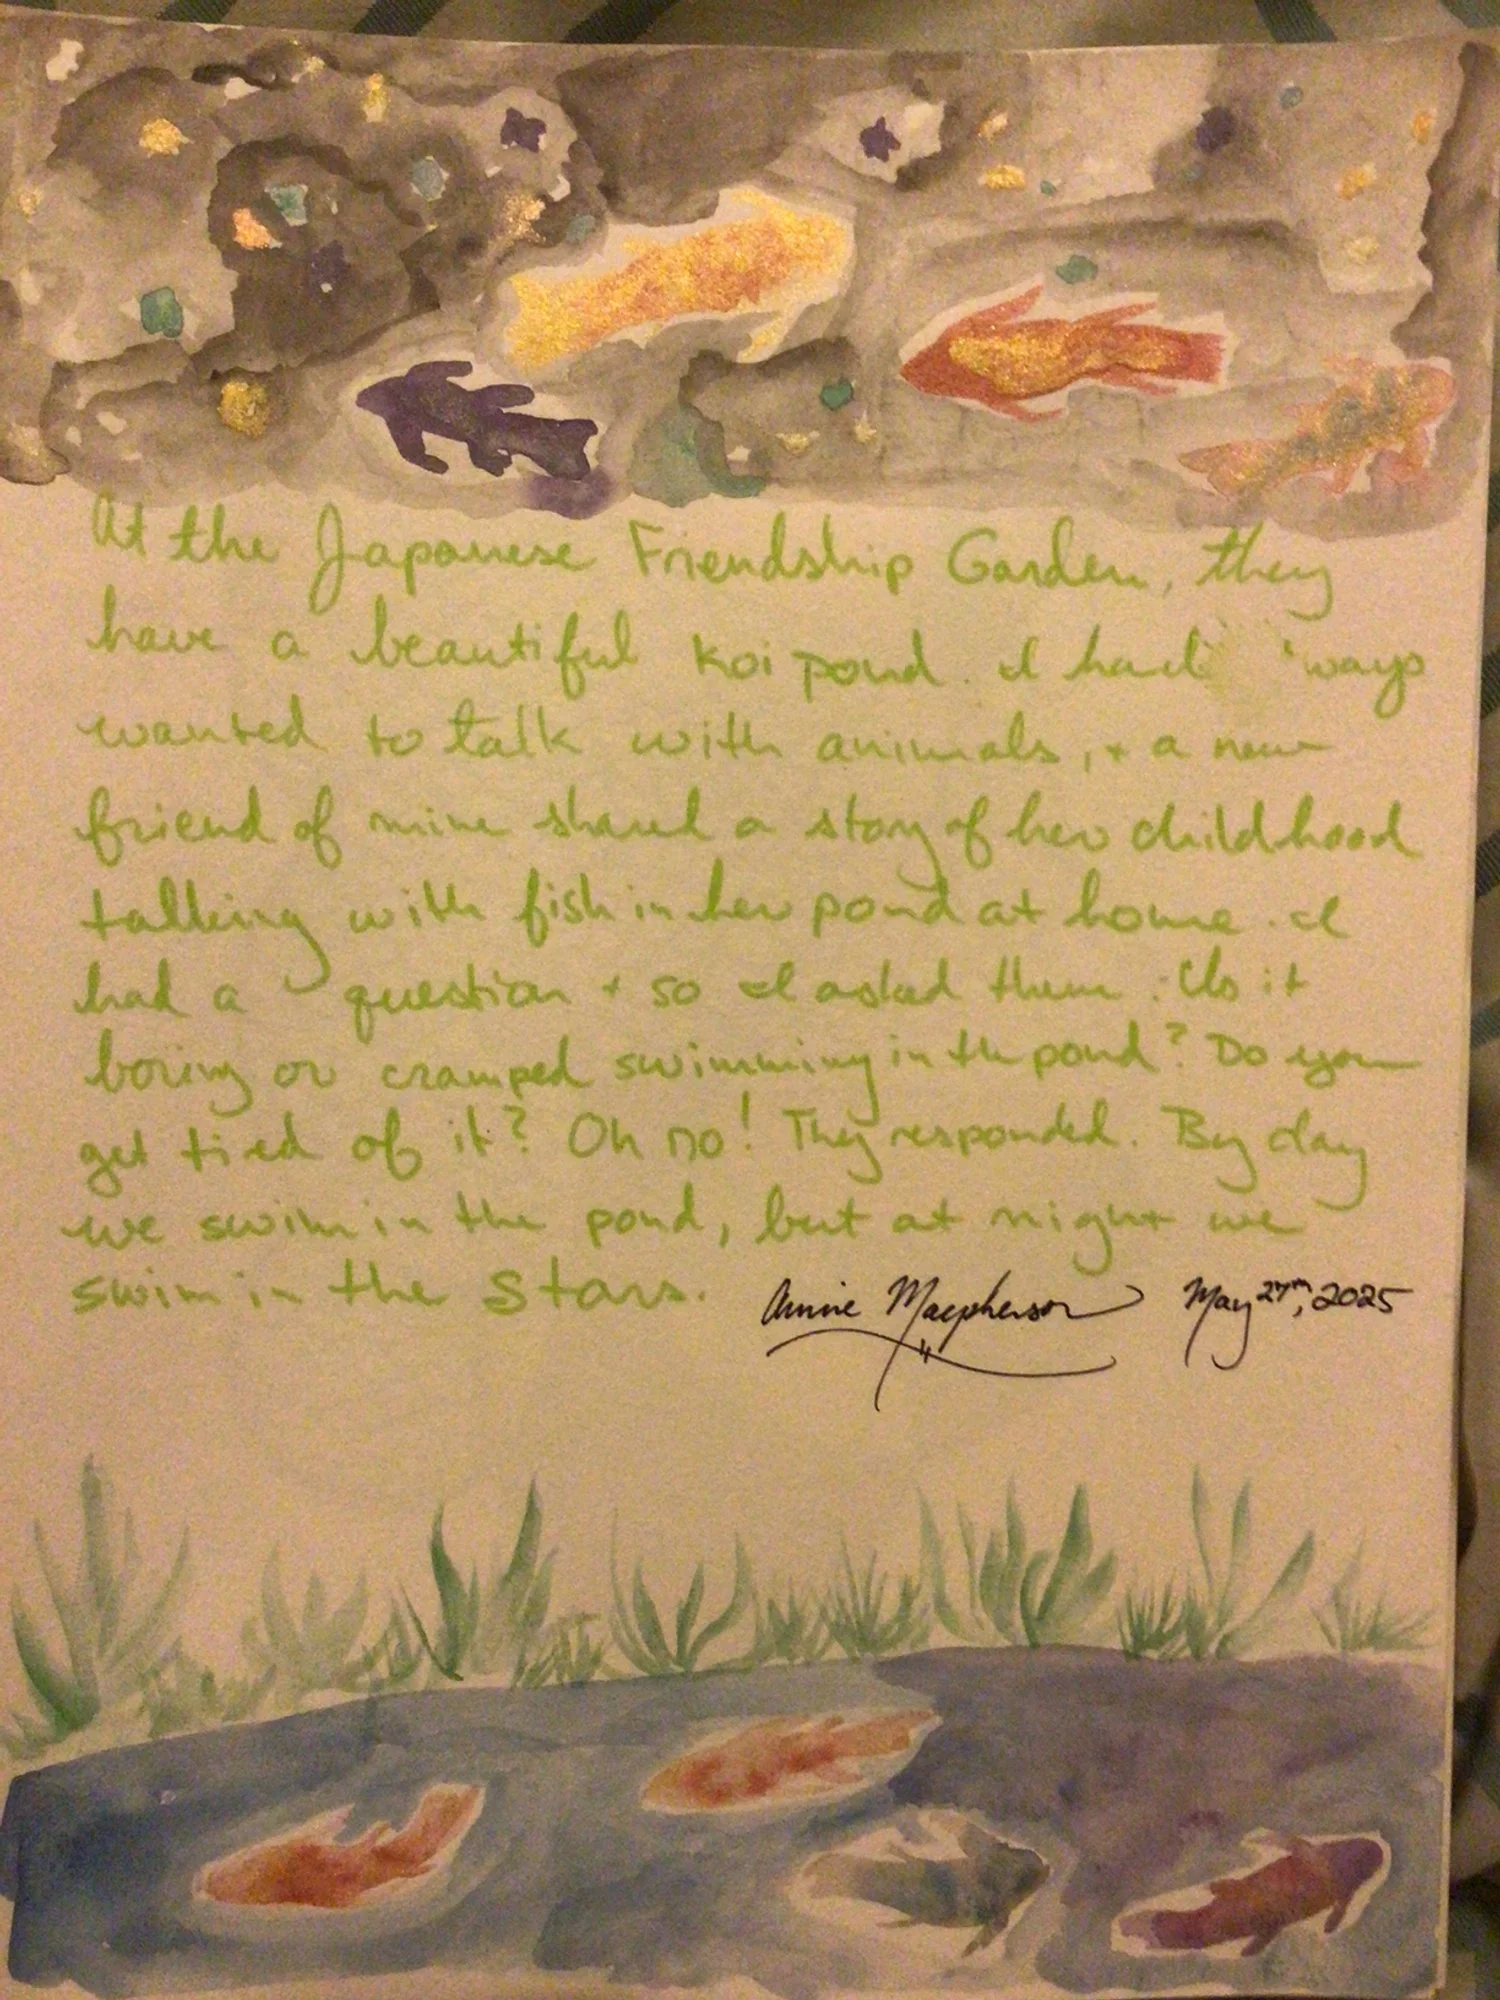 At the Japanese Friendship Garden, they
have a beautiful koi pond. I had 'ways
wanted to talk with animals, + a new
friend of mine shared a story of her childhood
talking with fish in her pond at home. I
had a question + so I asked them: Is it
boring or cramped swimming in the pond? Do you
get tired of it? Oh no! They responded. By day
we swim in the pond, but at night we
swim in the stars.
Annie Macpherson May 27th, 2025